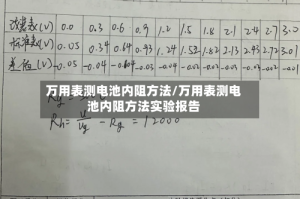 改装表(V) 0.0 0.3 0.6 0.9 1.2 1.5 1.8 2.1 2.4 2.7 3.0
标准表(V) 0.05 0.34 0.64 0.93 1.24 1.53 1.82 2.13 2.43 2.72 3.01
差值(V) -0.05 -0.04 -0.04 -0.03 -0.04 -0.03 -0.02 -0.03 -0.03 -0.02 -0.01
万用表测电池内阻方法/万用表测电
池内阻方法实验报告
Rh = V/Vg - Rg = 12000